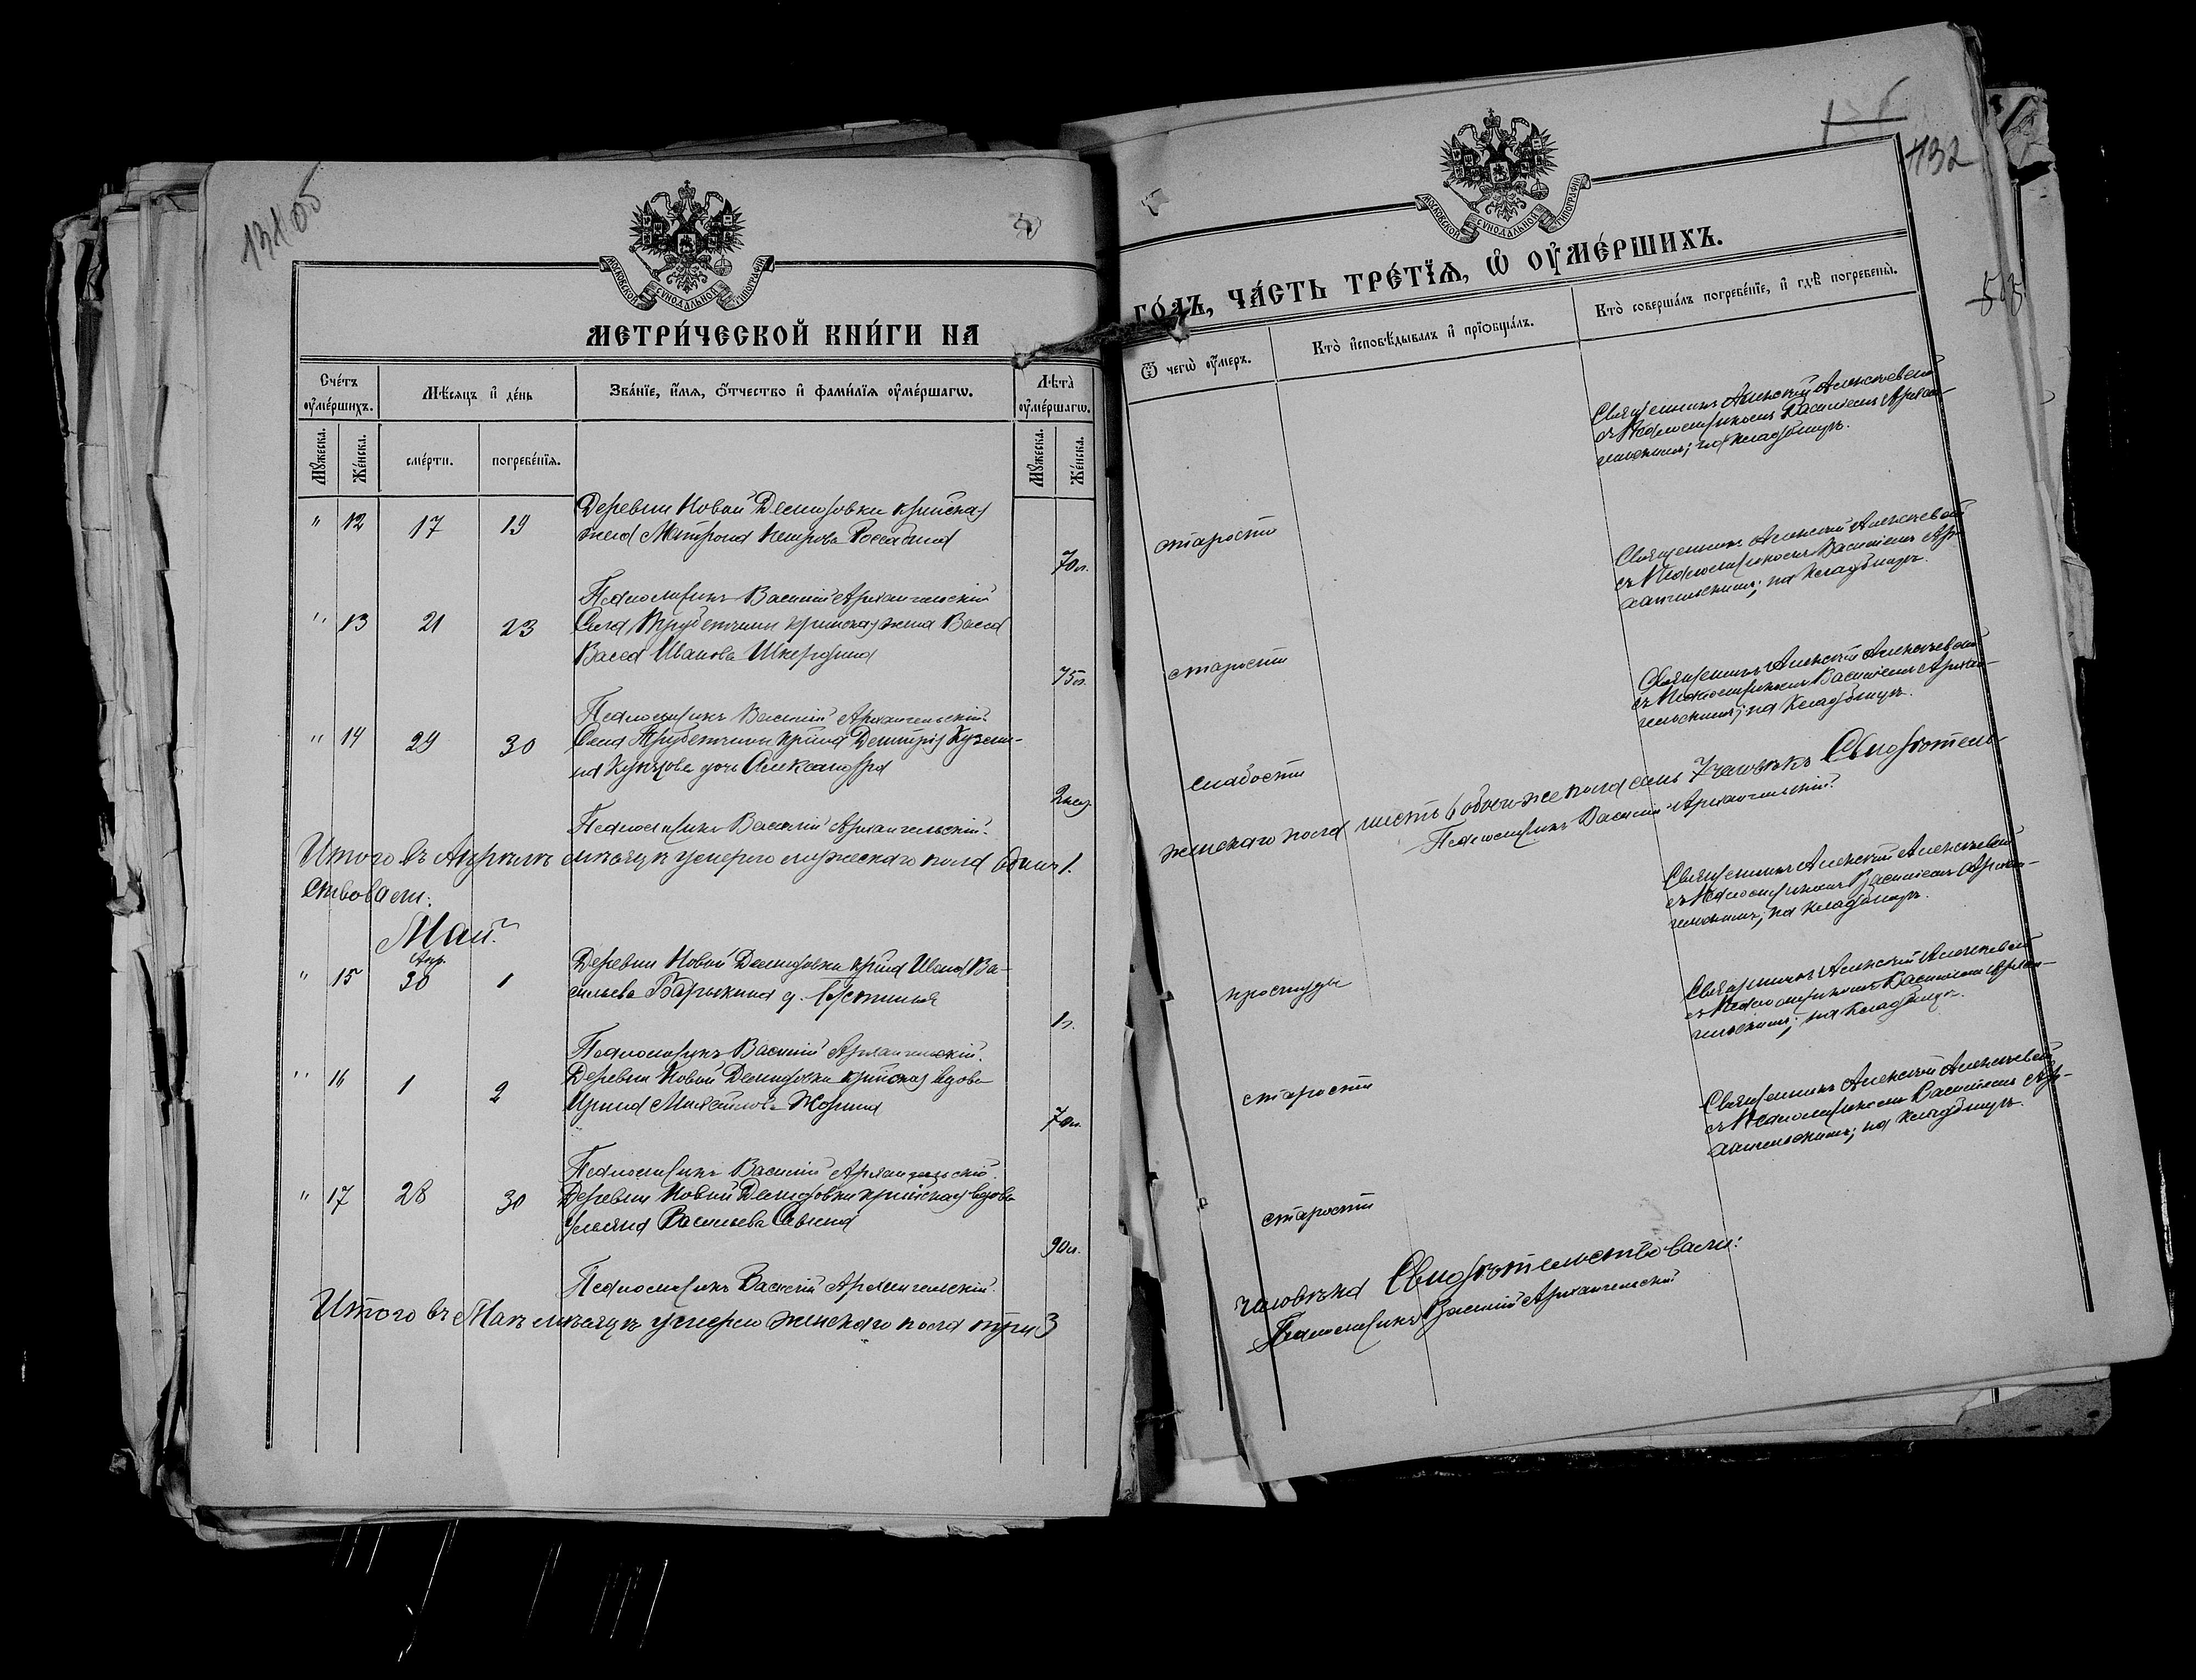 131 об
МОСКОВСКОЙ СѴНОДАЛЬНОЙ ТИПОГРАФІИ
МЕТРИ́ЧЕСКОЙ КНИ́ГИ НА
Сче́тъ ᲂу҆ме́ршихъ.
Мѣ́сѧцъ и҆ де́нь
Зва́нїе, и҆́мѧ, ѻ҆́тчество и҆ фами́лїѧ ᲂу҆ме́ршагѡ.
Лѣта̀ ᲂу҆ме́ршагѡ.
Мꙋ́жеска.
Же́нска.
сме́рти.
погребе́нїѧ.
Мꙋ́жеска.
Же́нска.
Деревни Новой Демидовки крестьянская
" 12 17 19 жена Матрона Петрова
70 л.
Псаломщикъ Василій Архангельскій
" 13 21 23 Села Трубетчины крест. жена Васса
Васса Иванова
75 л.
Псаломщикъ Василій Архангельскій.
" 14 29 30 Села Трубетчины кр-на Димитрія Кузьми-
на Купцова дочь Александра
2 мес.
Псаломщикъ Василій Архангельскій.
Итого въ Апрѣлѣ мѣсяцѣ умерло мужескаго пола одинъ 1.
ствовали:
Май.
Апр.
" 15 30 1 Деревни Новой Демидовки кр-на Ивана Ва-
сильева Барыкина д. Устинья
1 г.
Псаломщикъ Василій Архангельскій.
" 16 1 2 Деревни Новой Демидовки крест. вдова
Ирина Михайлова Жорина
70 л.
Псаломщикъ Василій Архангельскій.
" 17 28 30 Деревни Новой Демидовки крест. вдова
Ульяна Васильева Савина
90 л.
Псаломщикъ Василій Архангельскій.
Итого въ Маѣ мѣсяцѣ умерло женскаго пола три 3
132
МОСКОВСКОЙ СѴНОДАЛЬНОЙ ТИПОГРАФІИ
ГО́ДЪ, ЧА́СТЬ ТРЕ́ТЇѦ, Ѡ҆ ОУ҆МЕ́РШИХЪ.
Ѿ чегѡ̀ ᲂу҆́меръ.
Кто̀ и҆сповѣ́дывалъ и҆ прїѻбща́лъ.
Кто̀ соверша́лъ погребе́нїе, и҆ гдѣ̀ погребены̀.
Священникъ Алексій Алексѣевскій
съ Псаломщикомъ Василіемъ Архан-
гельскимъ; на кладбищѣ.
старости
Священникъ Алексій Алексѣевскій
съ Псаломщикомъ Василіемъ Ар-
хангельскимъ; на кладбищѣ.
старости
Священникъ Алексій Алексѣевскій
съ Псаломщикомъ Василіемъ Архан-
гельскимъ; на кладбищѣ.
слабости
женскаго пола шесть 6 обоего же пола семь 7 человѣкъ Свидѣтель-
Псаломщикъ Василій Архангельскій.
Священникъ Алексій Алексѣевскій
съ Псаломщикомъ Василіемъ Архан-
гельскимъ; на кладбищѣ.
простуды
Священникъ Алексій Алексѣевскій
съ Псаломщикомъ Василіемъ Архан-
гельскимъ; на кладбищѣ.
старости
Священникъ Алексій Алексѣевскій
съ Псаломщикомъ Василіемъ Ар-
хангельскимъ; на кладбищѣ.
старости
человѣка Свидѣтельствовали:
Псаломщикъ Василій Архангельскій